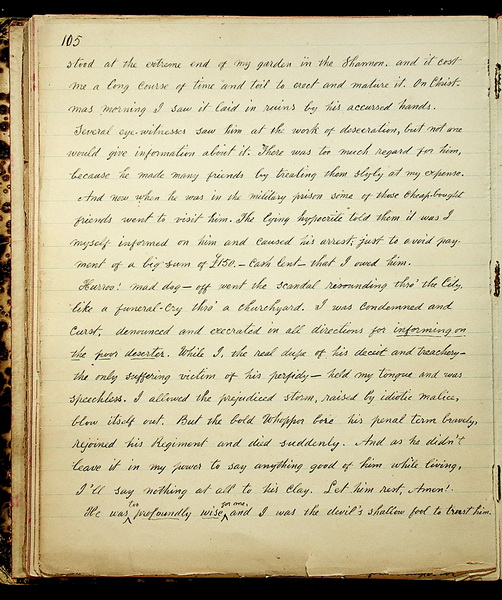 105
stood at the extreme end of my garden in the Shannon. and it cost
me a long course of time and toil to erect and mature it. On Christ-
mas morning I saw it laid in ruins by his accursed hands.
Several eye-witnesses saw him at the work of desecration, but not one
would give information about it. There was too much regard for him,
because he made many friends by treating them slyly at my expense.
And now when he was in the military prison some of those cheap-bought
friends went to visit him. The lying hypocrite told them it was I
myself informed on him and caused his arrest, just to avoid pay-
ment of a big sum of £150. — Cash lent — that I owed him.
Hurroo! mad dog — off went the scandal resounding thro' the City,
like a funeral-cry thro' a churchyard. I was condemned and
curst, denounced and execrated in all directions for informing on
the poor deserter. While I, the real dupe of his deceit and treachery —
the only suffering victim of his perfidy — held my tongue and was
speechless. I allowed the prejudiced storm, raised by idiotic malice,
blow itself out. But the bold Whopper bore his penal term bravely,
rejoined his Regiment and died suddenly. And as he didn't
leave it in my power to say anything good of him while living,
I'll say nothing at all to his clay. Let him rest, Amen!
He was too profoundly wise for me, and I was the devil's shallow fool to trust him.